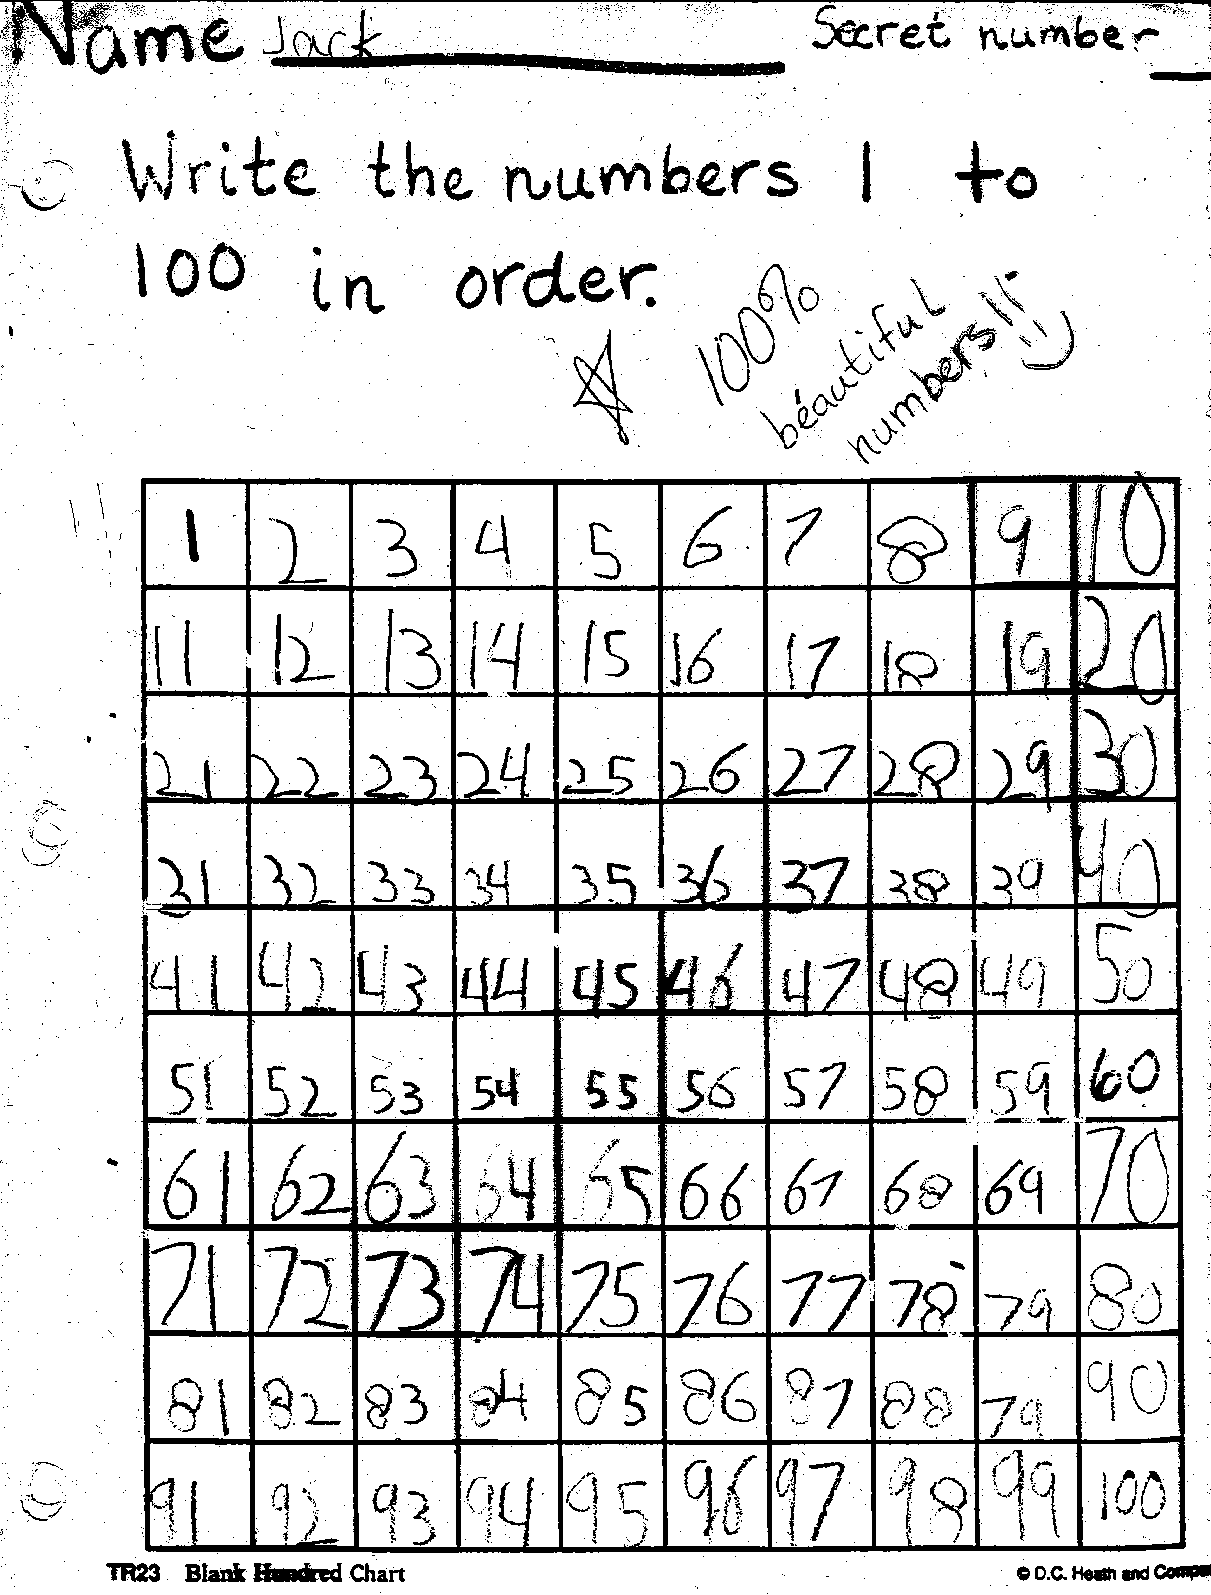 Name Jack
Secret number
Write the numbers 1 to
100 in order.
100%
beautiful
numbers!!
1 2 3 4 5 6 7 8 9 10
11 12 13 14 15 16 17 18 19 20
21 22 23 24 25 26 27 28 29 30
31 32 33 34 35 36 37 38 39 40
41 42 43 44 45 46 47 48 49 50
51 52 53 54 55 56 57 58 59 60
61 62 63 64 65 66 67 68 69 70
71 72 73 74 75 76 77 78 79 80
81 82 83 84 85 86 87 88 79 90
91 92 93 94 95 96 97 98 99 100
TR23 Blank Hundred Chart
© D.C. Heath and Compa